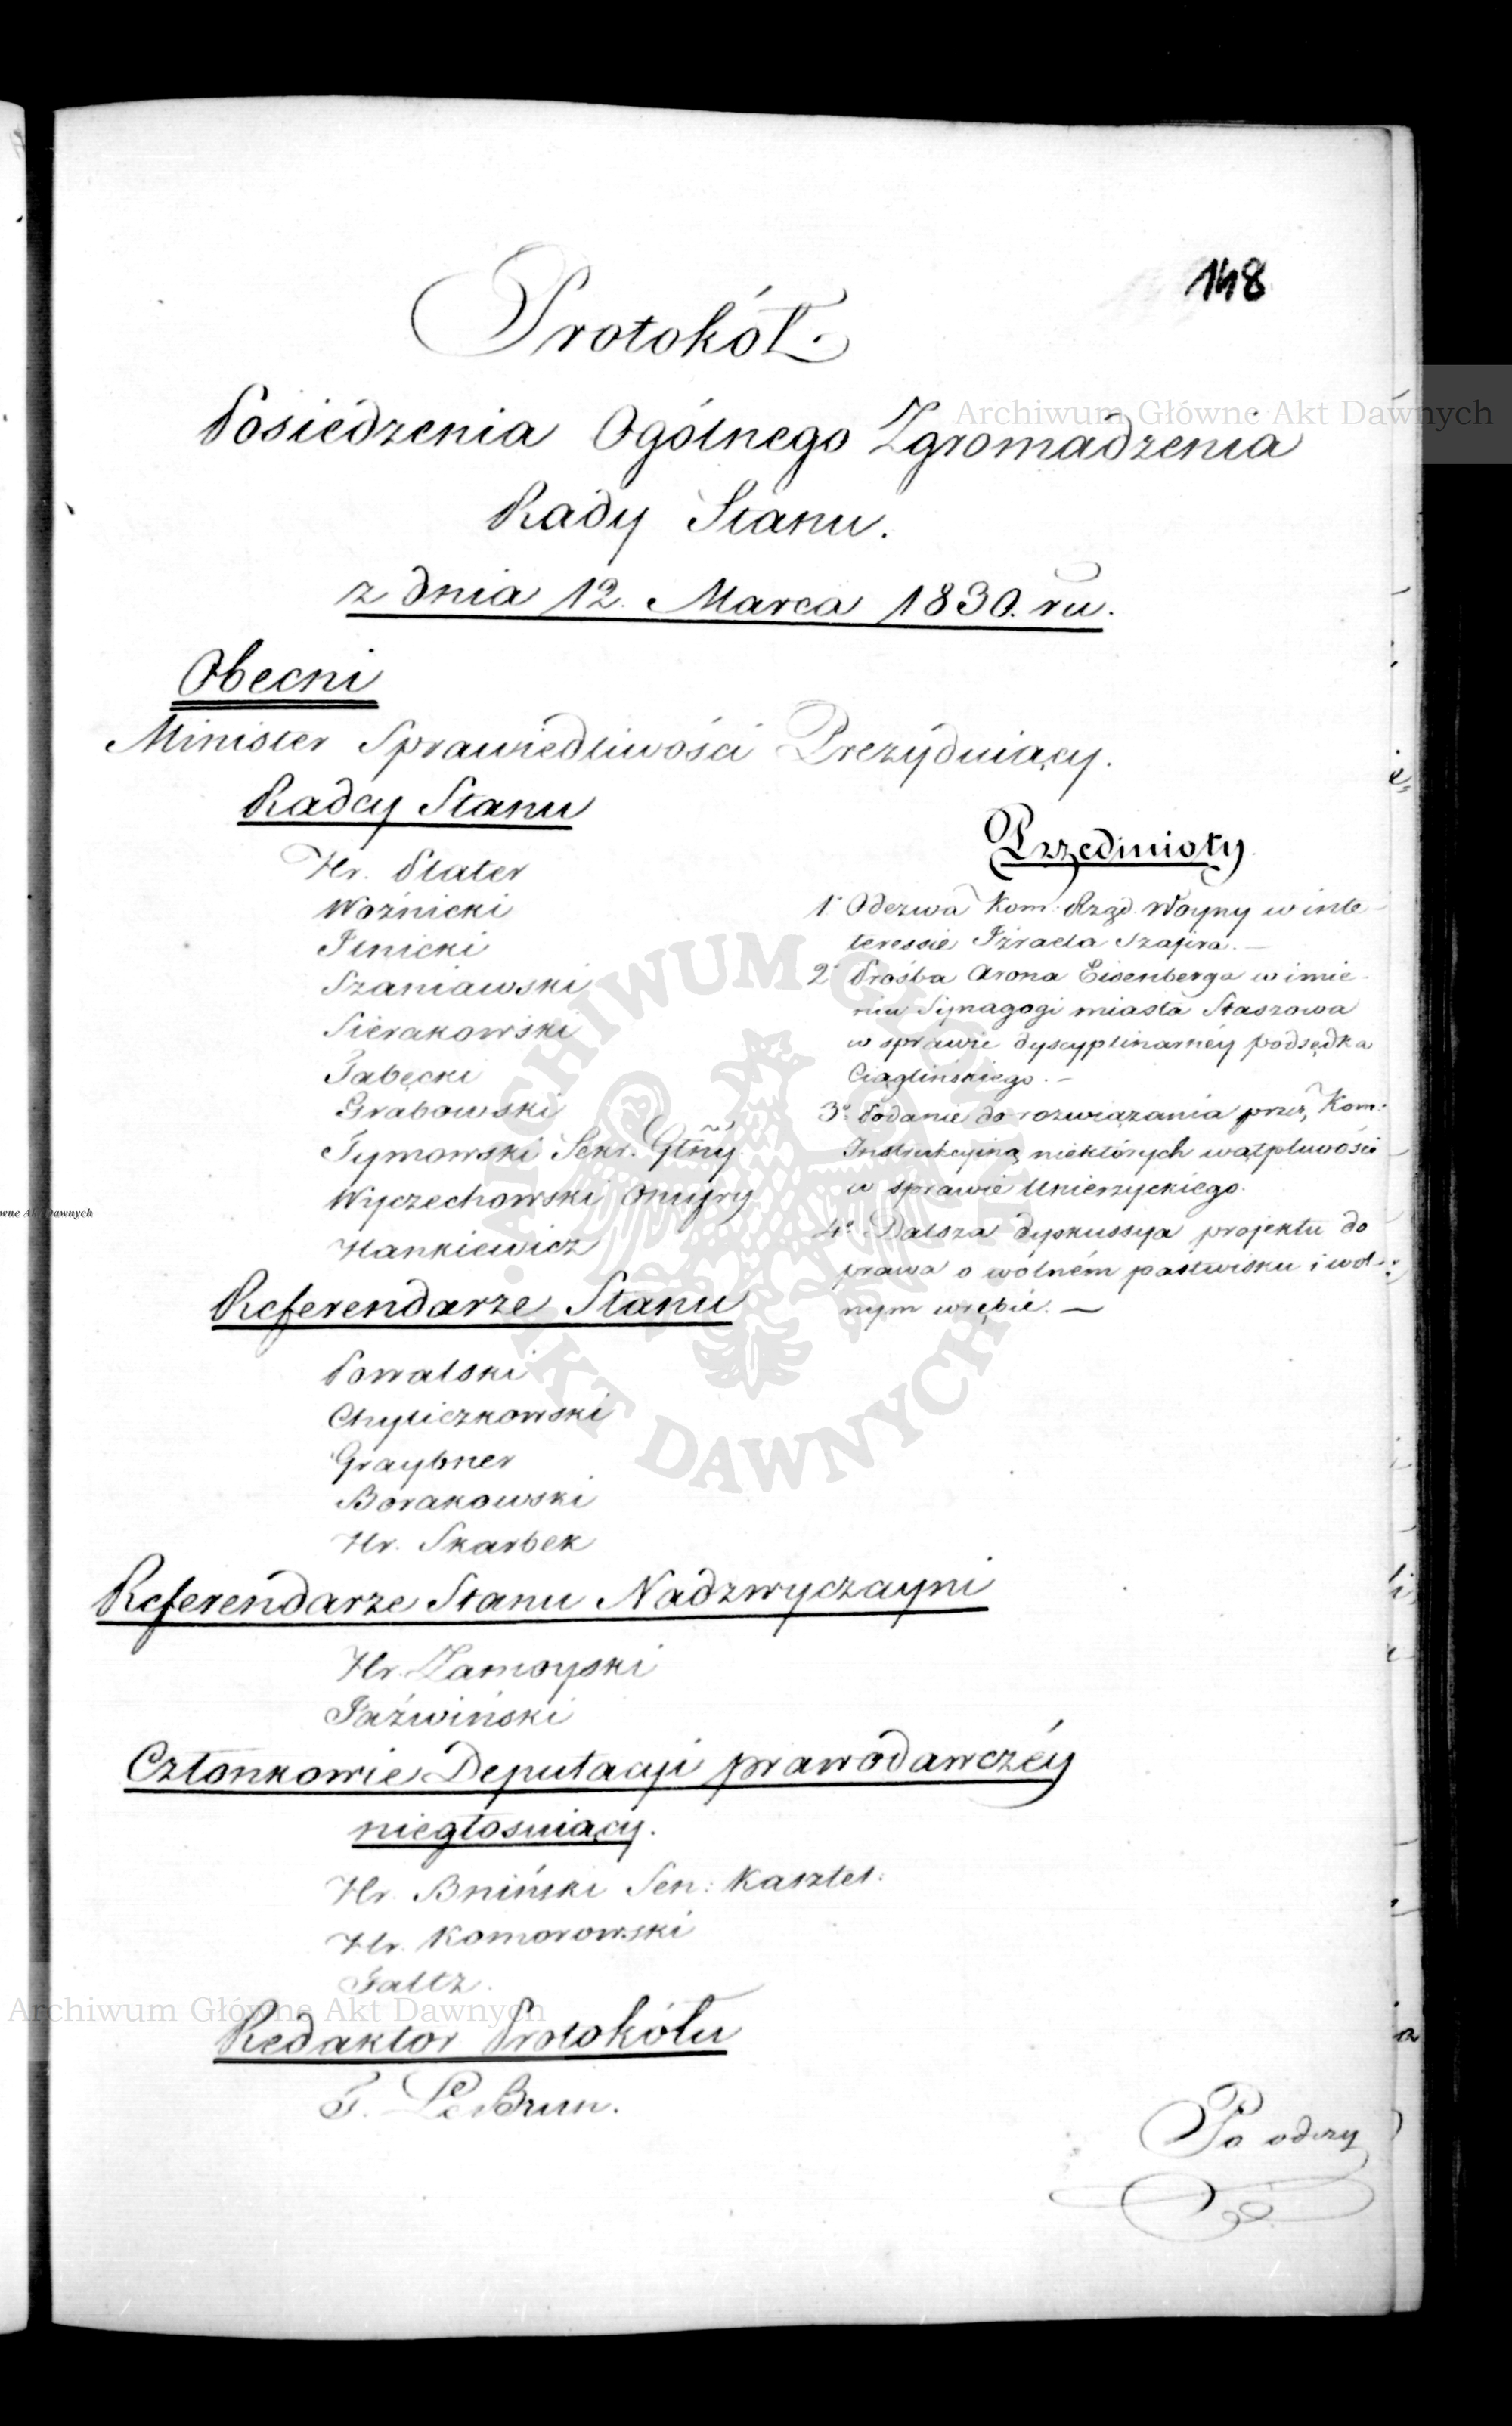 148
Protokół.
Posiedzenia Ogólnego Zgromadzenia
Rady Stanu.
z dnia 12. Marca 1830. ru.
Obecni
Minister Sprawiedliwości Prezyduiący.
Radcy Stanu
Hr. Plater
Woźnicki
Linicki
Szaniawski
Sierakowski
Tabęcki
Grabowski
Tymowski Sekr. Głny
Wyczechowski Onufry
Hankiewicz
Referendarze Stanu
Powalski
Chyliczkowski
Graybner
Borakowski
Hr. Skarbek
Referendarze Stanu Nadzwyczayni
Hr. Zamoyski
Jaźwiński
Członkowie Deputacyi prawodawczéy
niegłosuiący.
Hr. Bniński Sen: Kasztel:
Hr. Komorowski
Faltz.
Redaktor Protokółu
F. Le Brun.
Przedmioty
1° Odezwa Kom: Rząd. Woyny w inte-
teressie Izraela Szapira. —
2° Prośba Arona Eisenberga w imie-
niu Synagogi miasta Staszowa
w sprawie dyscyplinarnéy podsędka
Ciąglińskiego. —
3° Podanie do rozwiązania przez Kom:
Instrukcyiną niektórych wątpliwości
w sprawie Unierzyckiego.
4° Dalsza dyskussya projektu do
prawa o wólném pastwisku i wol-
nym wrębie. —
Po odczy
Archiwum Główne Akt Dawnych
ARCHIWUM GŁÓWNE AKT DAWNYCH
Archiwum Główne Akt Dawnych
wne Akt Dawnych